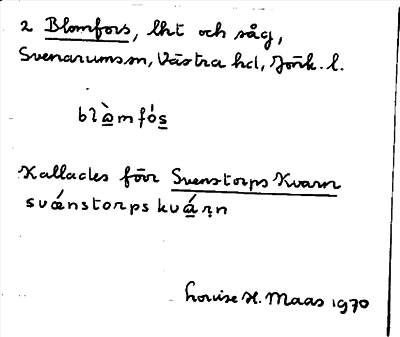 2 Blomfors, lht och såg,
Svenarumssn, Västra hd, Jönk. l.
blàmfós
Kallades förr Svenstorps Kvarn
svǽnstorps kvárn
Louise H. Maas 1970